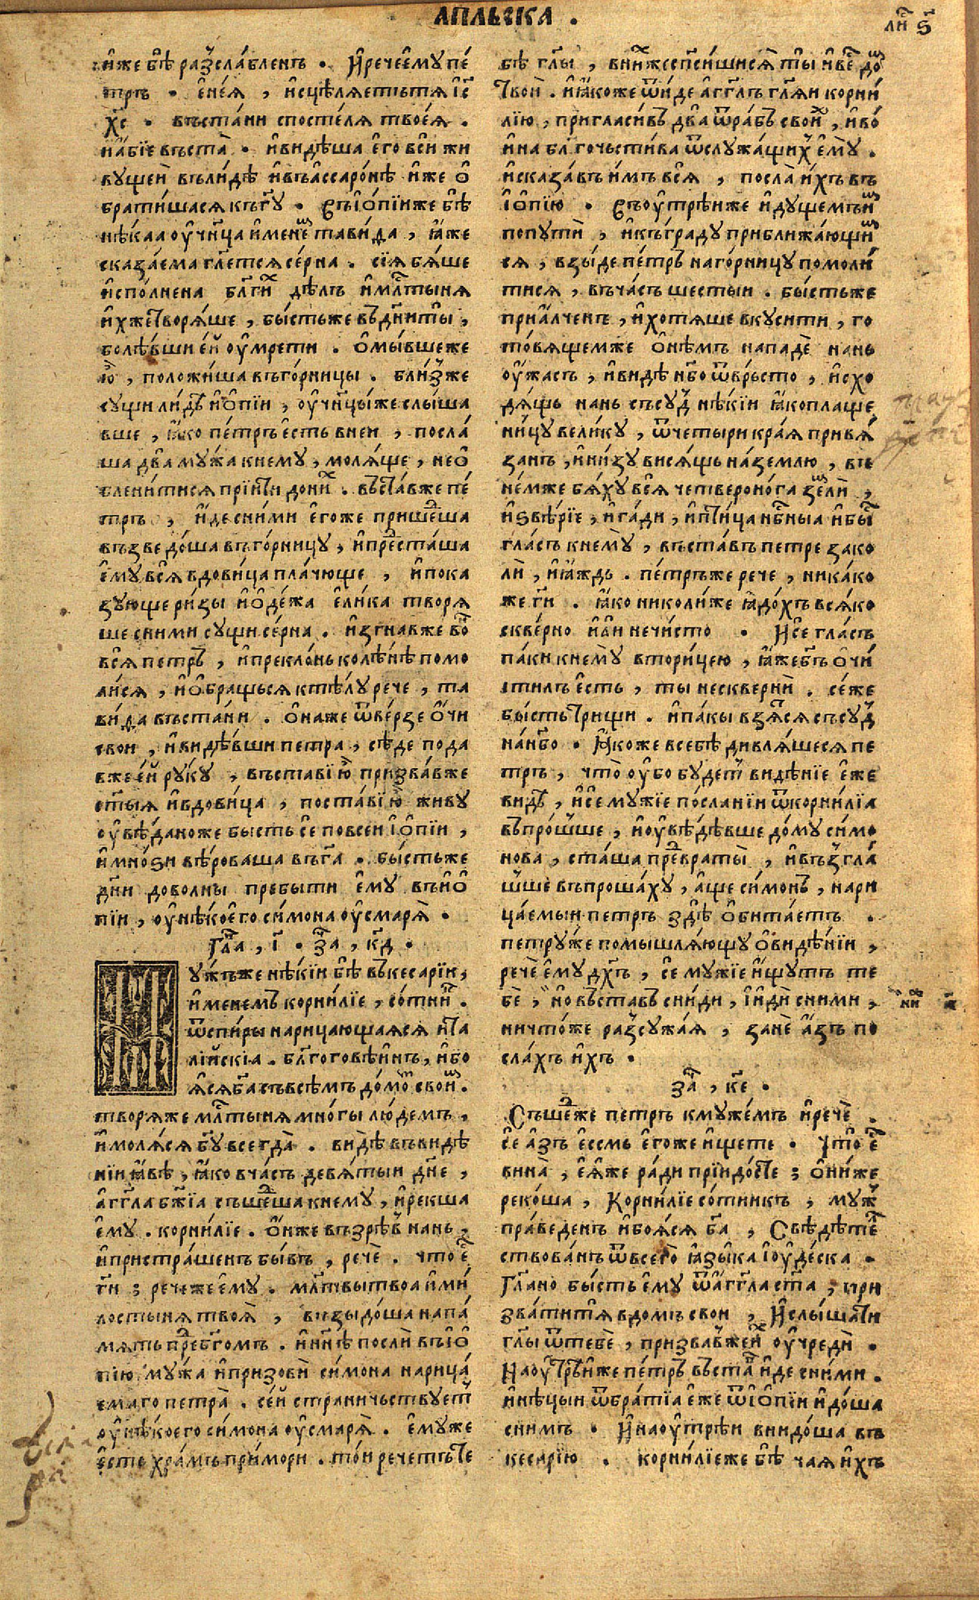 АПЛЬСКА .
ли҃ ѕ҃
и҆же бѣ̀ разсла́бленъ . И҆рече е҆му пе́
тръ . е҆не́а , и҆сцѣлѧ́етътѧ і҆с
хс . въста́ни спосте́лѧ твое́ѧ .
и҆а́бїе въста̀ . и҆видѣша е҆го вси жи
вущеи въли́дѣ и҆въа҆ссаро́нѣ и҆же о҆
брати́шасѧ къгу . Въі҆ѻпїи же бѣ̀
нѣ́каа ѹ҆чн҃ца и҆менеⷨ тави́да , ꙗ҆же
сказа́ема гл҃етсѧ се́рна . сїѧ бѧ́ше
и҆спо́лнена бл҃ги́х дѣ́лъ и҆мл҃тынѧ
и҆хже творѧ́ше , бы́стьже въдни ты̀ ,
болѣ́вши е҆й ѹ҆мрети . ѡ҆мы́вшеже
ю҆̀ , положи́ша въго́рницы . бли́зже
сущи ли́дѣ и҆ѻ҆пїи , ѹ҆чн҃цы́же слы́ша
вше , ꙗ҆́ко пе́тръ е҆сть вней , посла́
ша два му́жа кнему , молѧ́ще , нео҆
блени́тисѧ прїити дони́х . въста́вже пе́
тръ , и҆́де сни́ми е҆го́же прише́дша
възведо́ша въго́рницу , и҆предста́ша
е҆му всѧ̀ вдови́ца пла́чюще , и҆пока
зу́юще ри́зы и҆ѻ҆де́жа е҆ли́ка творѧ
ше сни́ми сущи се́рна . и҆згна́вже во́н
всѧ̀ петръ , и҆прекло́нь колѣ́нѣ помо
ли́сѧ , и҆ѻ҆бра́щьсѧ ктѣ́лу рече , та
ви́да въста́ни . ѻ҆на́же ѿве́рзе ѻ҆́чи
свои , и҆ви́дѣвши петра , сѣ́де пода́
вже е҆́й ру́ку , въста́ви ю҆̀ призва́вже
ст҃ы́ѧ и҆вдови́ца , поста́ви ю҆̀ живу
ѹ҆вѣ́даноже бысть се повсей і҆ѻ҆пїи ,
и҆мно́зи вѣ́роваша въга . бы́стьже
дн҃и дово́лны пребы́ти е҆му въи҆ѻ҆
пїи , ѹ҆нѣ́коего си́мона ѹ҆смарѧ̀ .
глⷡа , і҃ . за , кд҃ .
Мужъже нѣ́кїи бѣ̀ въкесарїи ,
и҆менемъ корни́лїе , со́тник .
ѿспи́ры нарица́ющаѧсѧ и҆та
лїйскїа . бл҃гоговѣ́инъ , и҆бо
ѧ́сѧ бг҃а съвсѣ́мъ до́мом свои́м .
творѧ́же мл҃тынѧ мно́гы лю́демъ ,
и҆молѧ́сѧ бг҃у всегда̀ . ви́дѣ въвидѣ́
нїи ꙗ҆́вѣ , ꙗ҆́ко вча́съ девѧ́тыи дн҃е ,
а҆́гг҃ла бж҃їа съше́дша кнему , и҆рекша
е҆му . корни́лїе . ѻ҆́нже възрѣ́в нань ,
и҆пристра́шенъ бывъ , рече . что е҆
гп҃и ; речеже е҆му . мл҃твы твоа и҆ми́
лостынѧ твоѧ̀ , възыдо́ша напа́
мѧть пред бг҃омъ . и҆нн҃ѣ послѝ въи҆ѻ҆
пїю му́жа и҆призовѝ си́мона нарица́
емаго петра̀ . се́й стра́нничьствует
ѹ҆нѣ́коего си́мона ѹ҆смарѧ̀ . е҆му́же
е҆сть хра́мъ примори . то́и речетъ те
бѣ̀ гл҃ы , вни́хже спс҃е́шисѧ ты̀ и҆ве́сь дом
твои̏ . и҆ꙗ҆́коже ѿи́де а҆́гг҃лъ гл҃ѧи корни
лїю , пригласи́въ два ѿра́бъ свои́х , и҆во́
ина бл҃гочьсти́ва ѿслужа́щих е҆му̀ .
и҆сказа́въ и҆мъ всѧ̀ , посла̀ и҆́хъ въ
і҆ѻ҆пїю . Въѹ҆трѣ́иже и҆ду́щемъ и́м
попутѝ , и҆къгра́ду приближа́ющим
сѧ , взы́де пе́тръ наго́рницу помоли́
тисѧ , въча́съ шестыи . бы́стьже
приа́лченъ , и҆хотѧ́ше вкуси́ти , го
то́вѧщемже ѻ҆нѣ́мъ нападѐ нань
ѹ҆́жасъ , и҆ви́дѣ нб҃о ѿвръсто , и҆схо
дѧ́щь нань съсу́д нѣ́кїи ꙗ҆́ко плаще
ни́цу вели́ку , ѿчеты́ри кра́ѧ привѧ́
занъ , и҆ни́зу висѧ́щь на́землю , въ
не́мже бѧ́ху всѧ̀ четверо́нога земли ,
и҆ѕвѣ́рїе , и҆га́ди , и҆пти́ца нб҃ныа и҆бысть
гла́съ кнему , въста́въ петре зако
лѝ , и҆ꙗ҆́ждь . пе́тръже рече , ника́ко
же гп҃и . ꙗ҆́ко николи́же ꙗ҆до́хъ всѧ́ко
скве́рно и҆ли нечи́сто . И҆се гла́съ
па́ки кнему̀ втори́цею , ꙗ҆́же бг҃ъ ѻ҆чи́
стилъ е҆сть , ты нескверни̏ . се́же
бы́сть трищи . и҆па́кы взѧ́сѧ съсу́д
нанб҃о . И҆́коже всебѣ̀ дивлѧ́шесѧ пе
тръ , что̀ ѹ҆бо будет видѣ́нїе е҆́же
видѣ̀ , и҆се му́жїе по́сланїи ѿкорни́лїа
въпро́шше , и҆ѹ҆вѣ́дѣвше до́му симо
нова , ста́ша пред враты̏ , и҆възгла́
шше въпроша́ху , а҆́ще симонъ , нари
ца́емыи петръ здѣ̀ ѻ҆бита́етъ .
петру́же помышлѧ́ющу ѻ҆виде́нїи ,
рече̏ е҆му дх҃ъ , се мужїе и҆щутъ те
бѐ , но въста́въ сни́ди , и҆идѝ сни́ми ,
ничто́же разсужа́ѧ , зане̏ а҆зъ по
сла́хъ и҆хъ .
за , ке҃ .
Съше́дже петръ кму́жемъ и҆рече̏ .
се а҆зъ е҆смь е҆го́же и҆щете . что е҆
вина̀ , е҆ѧ́же ра́ди прїидо́сте ; ѻ҆ни́же
реко́ша , Корни́лїе со́тникъ ; муж
пра́веденъ и҆боѧ́сѧ бг҃а , Свѣдѣтел
ствованъ ѿвсего ꙗ҆зы́ка і҆ѹ҆де́ска .
гл҃ано бы́сть е҆му ѿа҆́гг҃ла ст҃а ; при
зва́ти тѧ̀ вдомъ свои , И҆слы́шати
гл҃ы ѿтебѐ , призва́вже и́х ѹ҆чредѝ .
Наѹ҆трѣ́иже пе́тръ въста́в и҆́де сни́ми .
и҆нѣ́цыи ѿбра́тїа е҆́же ѿі҆ѻ҆пїи и҆до́ша
сни́мъ . И҆наѹ҆трѣи внидо́ша въ
кесарїю . корни́лїеже бѣ̀ ча́ѧ и҆́хъ